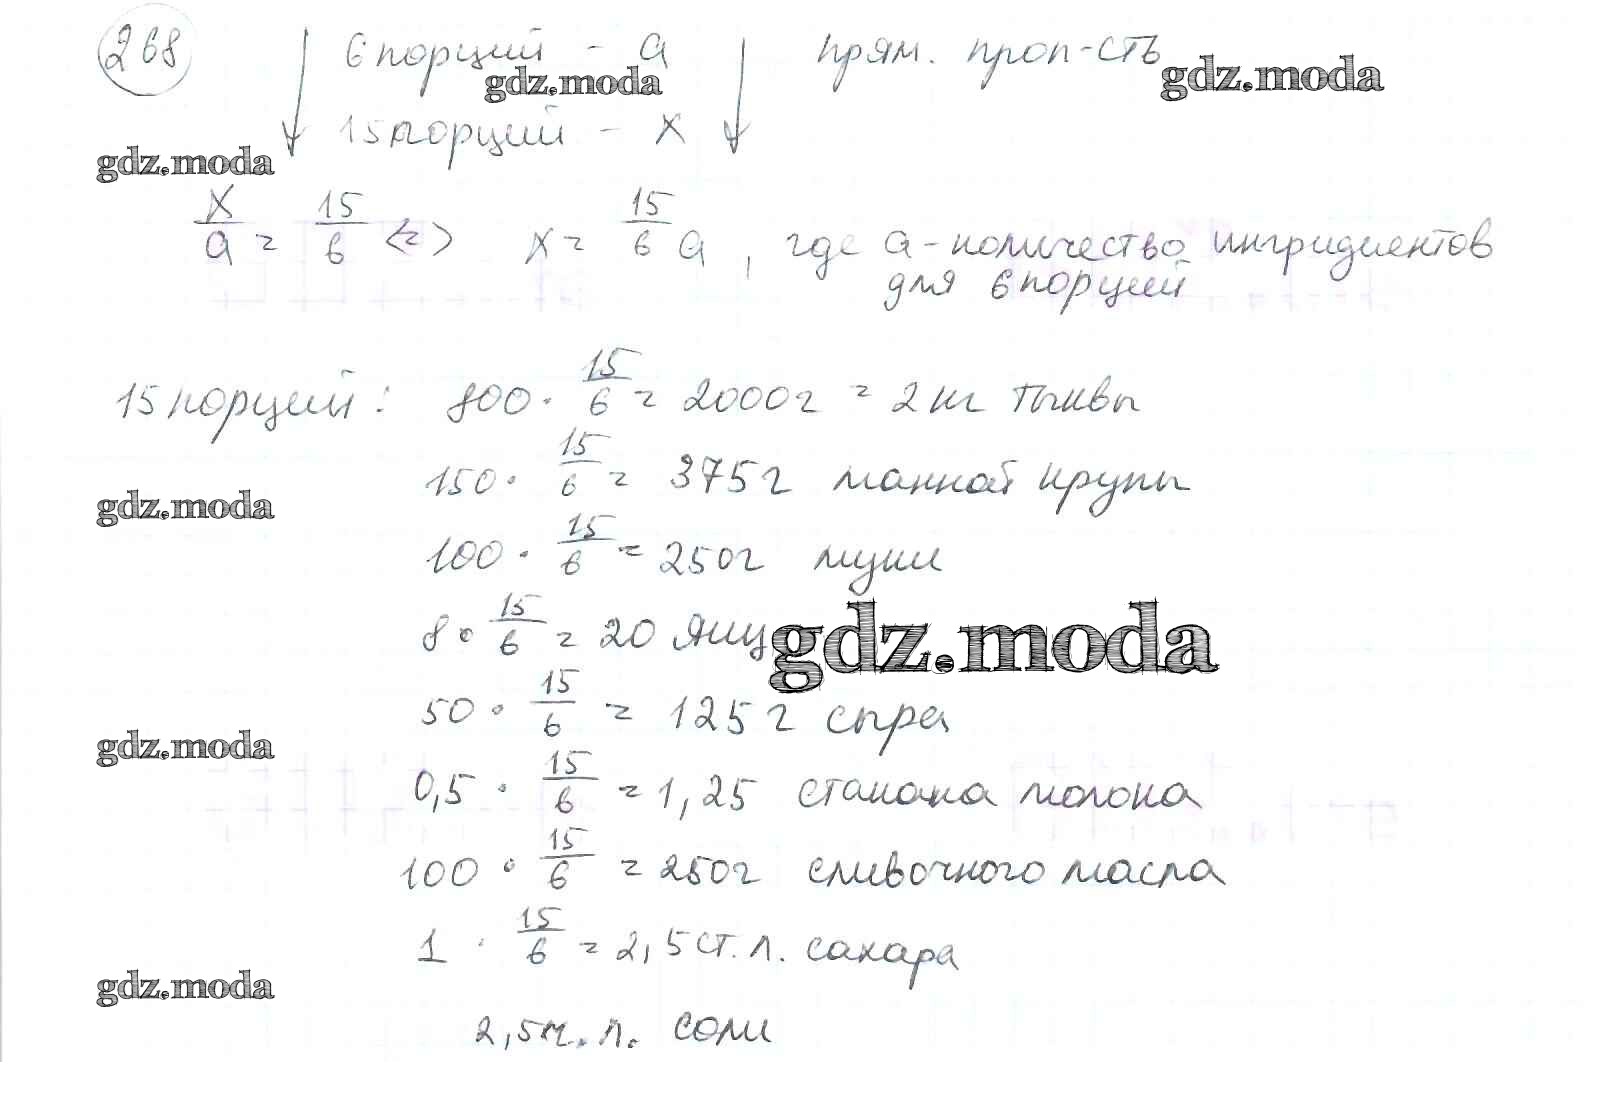 268 6 порций - а прям. проп-сть
gdz.moda gdz.moda
15 порций - х
gdz.moda
х/а = 15/6 <=> х = 15/6 а, где а - количество ингридиентов
для 6 порций
15 порций: 800 · 15/6 = 2000 г = 2 кг тыквы
150 · 15/6 = 375 г манной крупы
gdz.moda
100 · 15/6 = 250 г муки
8 · 15/6 = 20 яиц
gdz.moda
50 · 15/6 = 125 г сыра
gdz.moda
0,5 · 15/6 = 1,25 стакана молока
100 · 15/6 = 250 г сливочного масла
1 · 15/6 = 2,5 ст. л. сахара
gdz.moda
2,5 ч. л. соли